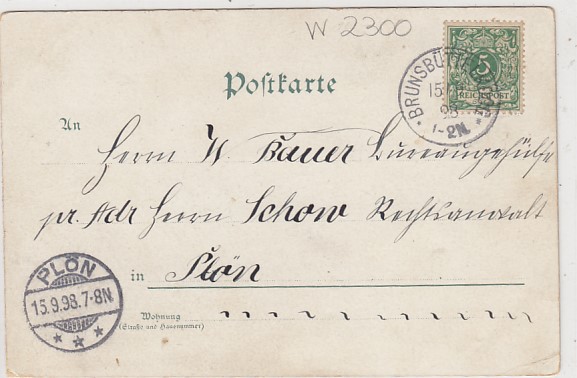 W 2300
5
REICHSPOST
BRUNSBÜTTEL
15
98
1-2N.
Postkarte
An
Herrn W. Bauer Bureaugehülfe
pr. Adr Herrn Schow Rechtsanwalt
in Plön
PLÖN
15.9.98.7-8N
Wohnung
(Straße und Hausnummer)